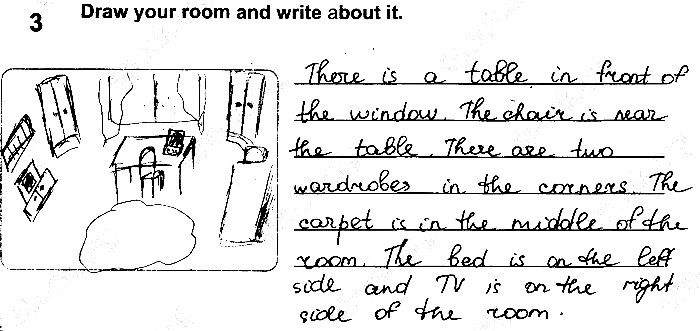 3 Draw your room and write about it.
There is a table in front of
the window. The chair is near
the table. There are two
wardrobes in the corners. The
carpet is in the middle of the
room. The bed is on the left
side and TV is on the right
side of the room.